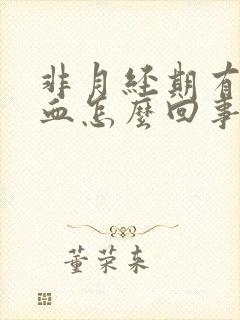 非月经期有
血怎麼回事
董荣来